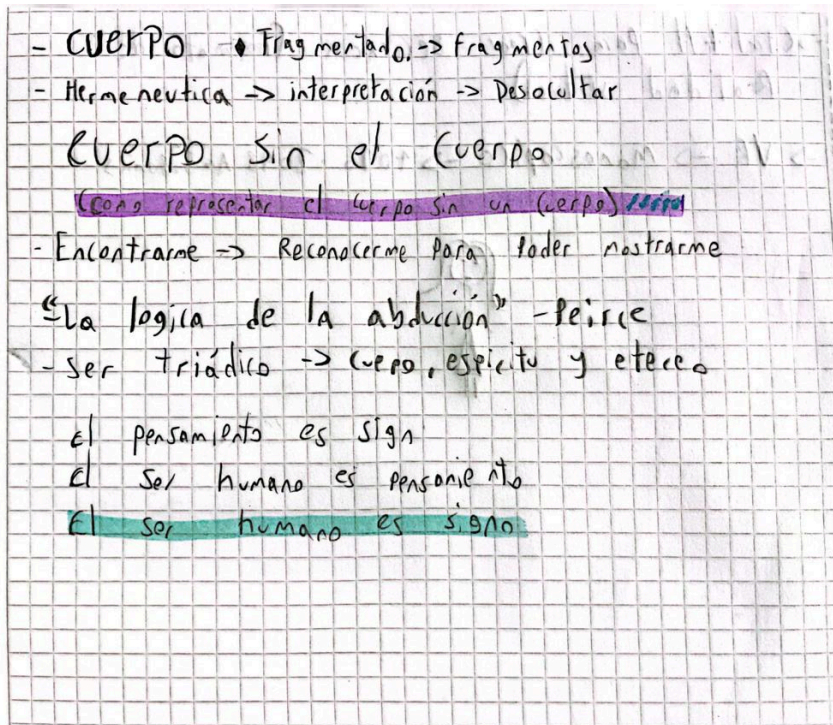 - CUERPO • Fragmentado. -> fragmentos
- Hermeneutica -> interpretación -> Desocultar
CUERPO sin el Cuerpo
(como representar el cuerpo sin un cuerpo)
- Encontrarme -> Reconocerme para Poder mostrarme
"La logica de la abducción" - Peirce
- Ser triádico -> cuerpo, espiritu y
El pensamiento es sign
El Ser humano es
El ser humano es signo